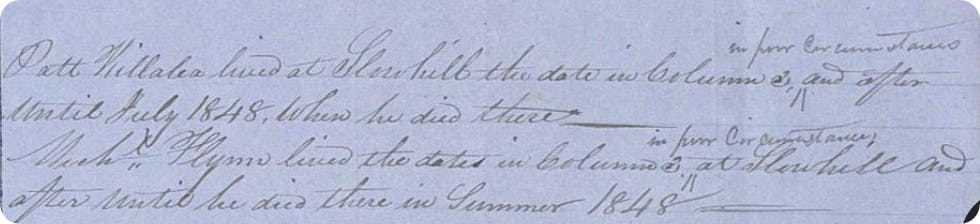 in poor Circumstances
Patt Killalea lived at Slowhill the date in Column 2, and after
Until July 1848, When he died there
in poor Circumstances,
Mich.l Flynn lived the dates in Column 2, at Slowhill and
after Until he died there in Summer 1848